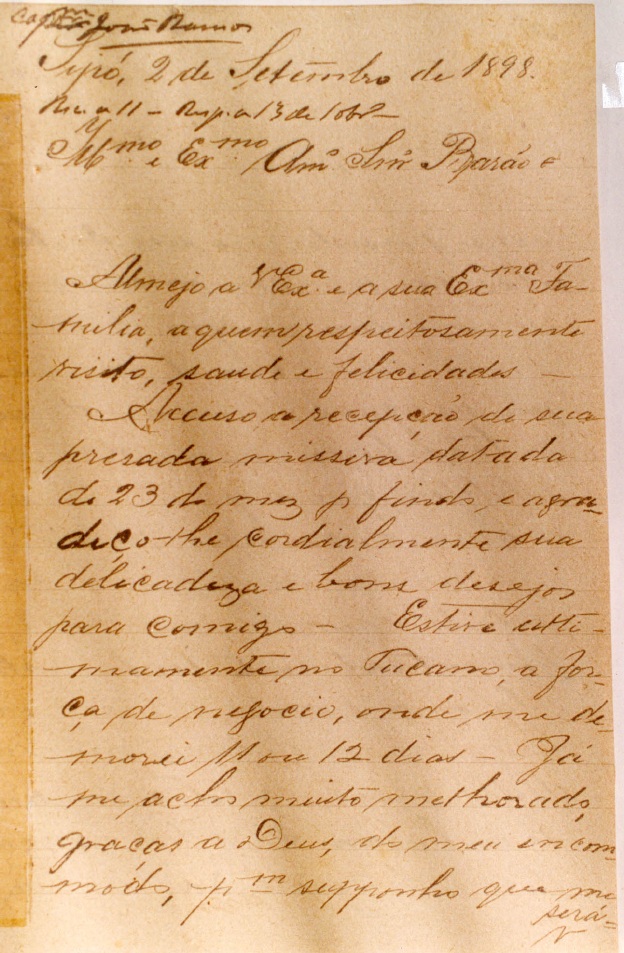 Cap.^m João Ramos
Sipó, 2 de Setembro de 1898.
Rec. a 11 – Resp. a 13 de 
Ill^mo. e Ex^mo Am.º Snr. Barão
Almejo a VEx.ª e a sua Ex^ma Fa-
milia, a quem respeitosamente
visito, saude e felicidades –
Accuso a recepção de sua
presada missiva datada
de 23 do mez p. findo, e agra-
deço-lhe cordialmente sua
delicadeza e bons desejos
para comigo – Estive ulti-
mamente no Tucano, a for-
ça de negocio, onde me de-
morei 11 ou 12 dias – Já
me acho muito melhorado,
graças a Deus, do meu incom-
modo, p^m supponho que me
será-